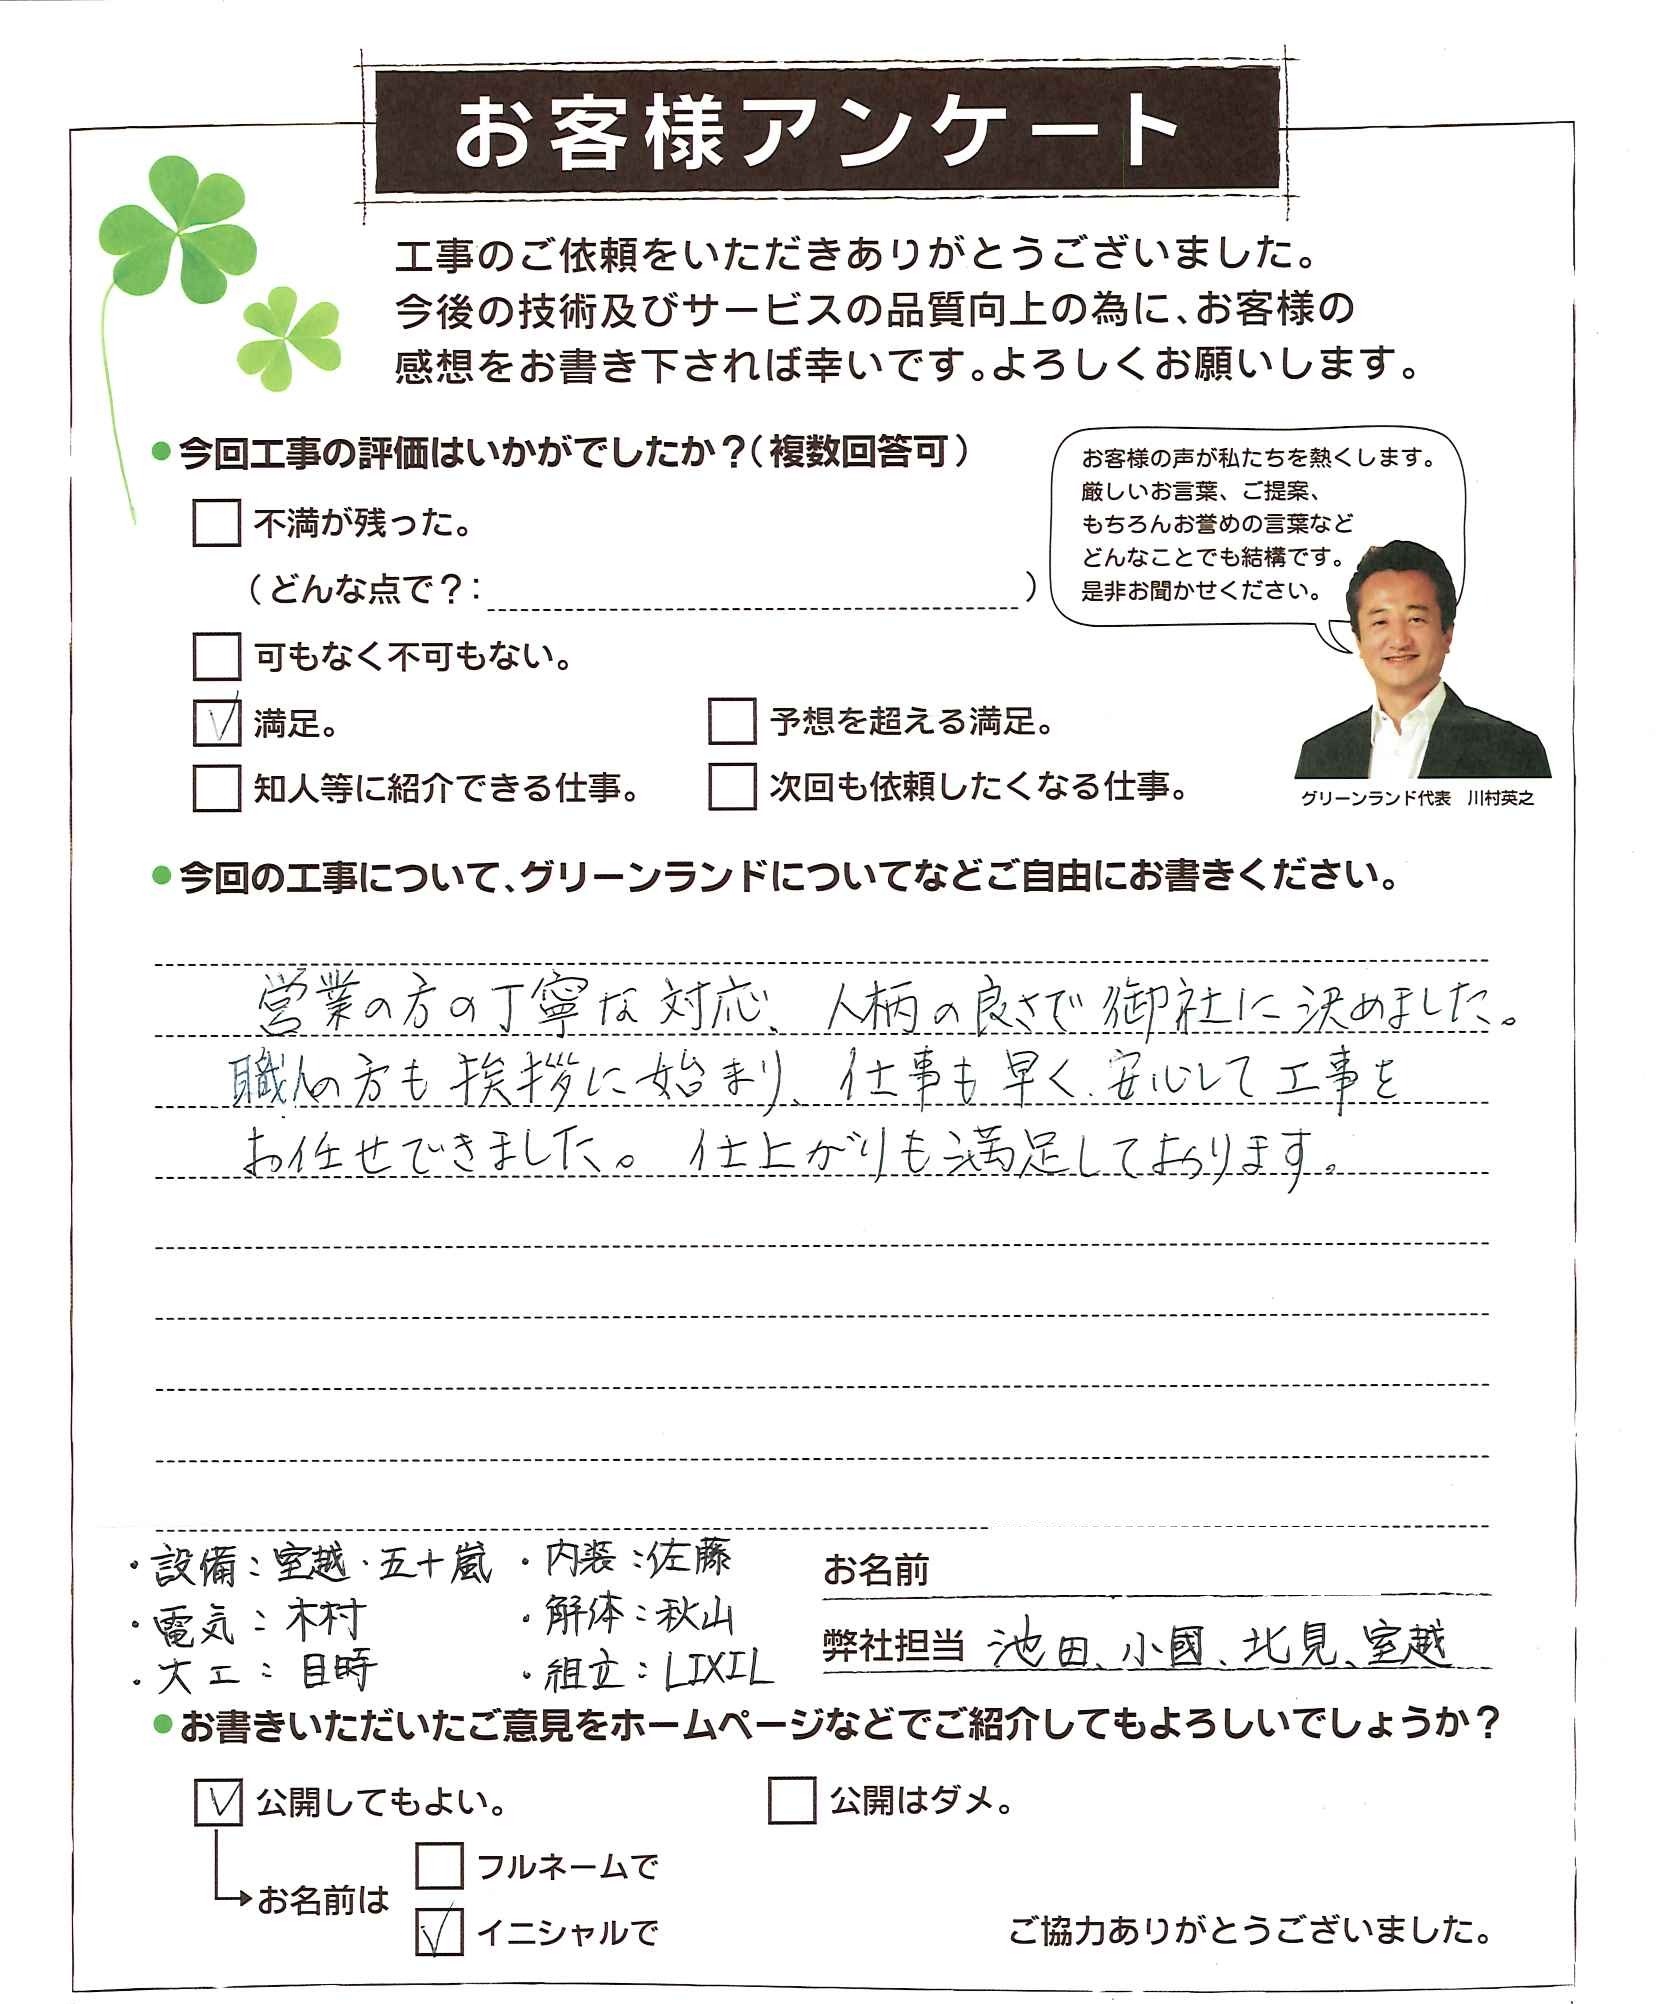 お客様アンケート
工事のご依頼をいただきありがとうございました。
今後の技術及びサービスの品質向上の為に、お客様の
感想をお書き下されば幸いです。よろしくお願いします。
●今回工事の評価はいかがでしたか？（複数回答可）
お客様の声が私たちを熱くします。
厳しいお言葉、ご提案、
もちろんお誉めの言葉など
どんなことでも結構です。
是非お聞かせください。
不満が残った。
（どんな点で？：　）
可もなく不可もない。
満足。
予想を超える満足。
知人等に紹介できる仕事。
次回も依頼したくなる仕事。
グリーンランド代表　川村英之
●今回の工事について、グリーンランドについてなどご自由にお書きください。
営業の方の丁寧な対応、人柄の良さで御社に決めました。
職人の方も挨拶に始まり、仕事も早く、安心して工事を
お任せできました。仕上がりも満足しております。
・設備：室越・五十嵐　・内装：佐藤
・電気：木村　・解体：秋山
・大工：目時　・組立：LIXIL
お名前
弊社担当　池田、小國、北見、室越
●お書きいただいたご意見をホームページなどでご紹介してもよろしいでしょうか？
公開してもよい。
公開はダメ。
お名前は
フルネームで
イニシャルで
ご協力ありがとうございました。